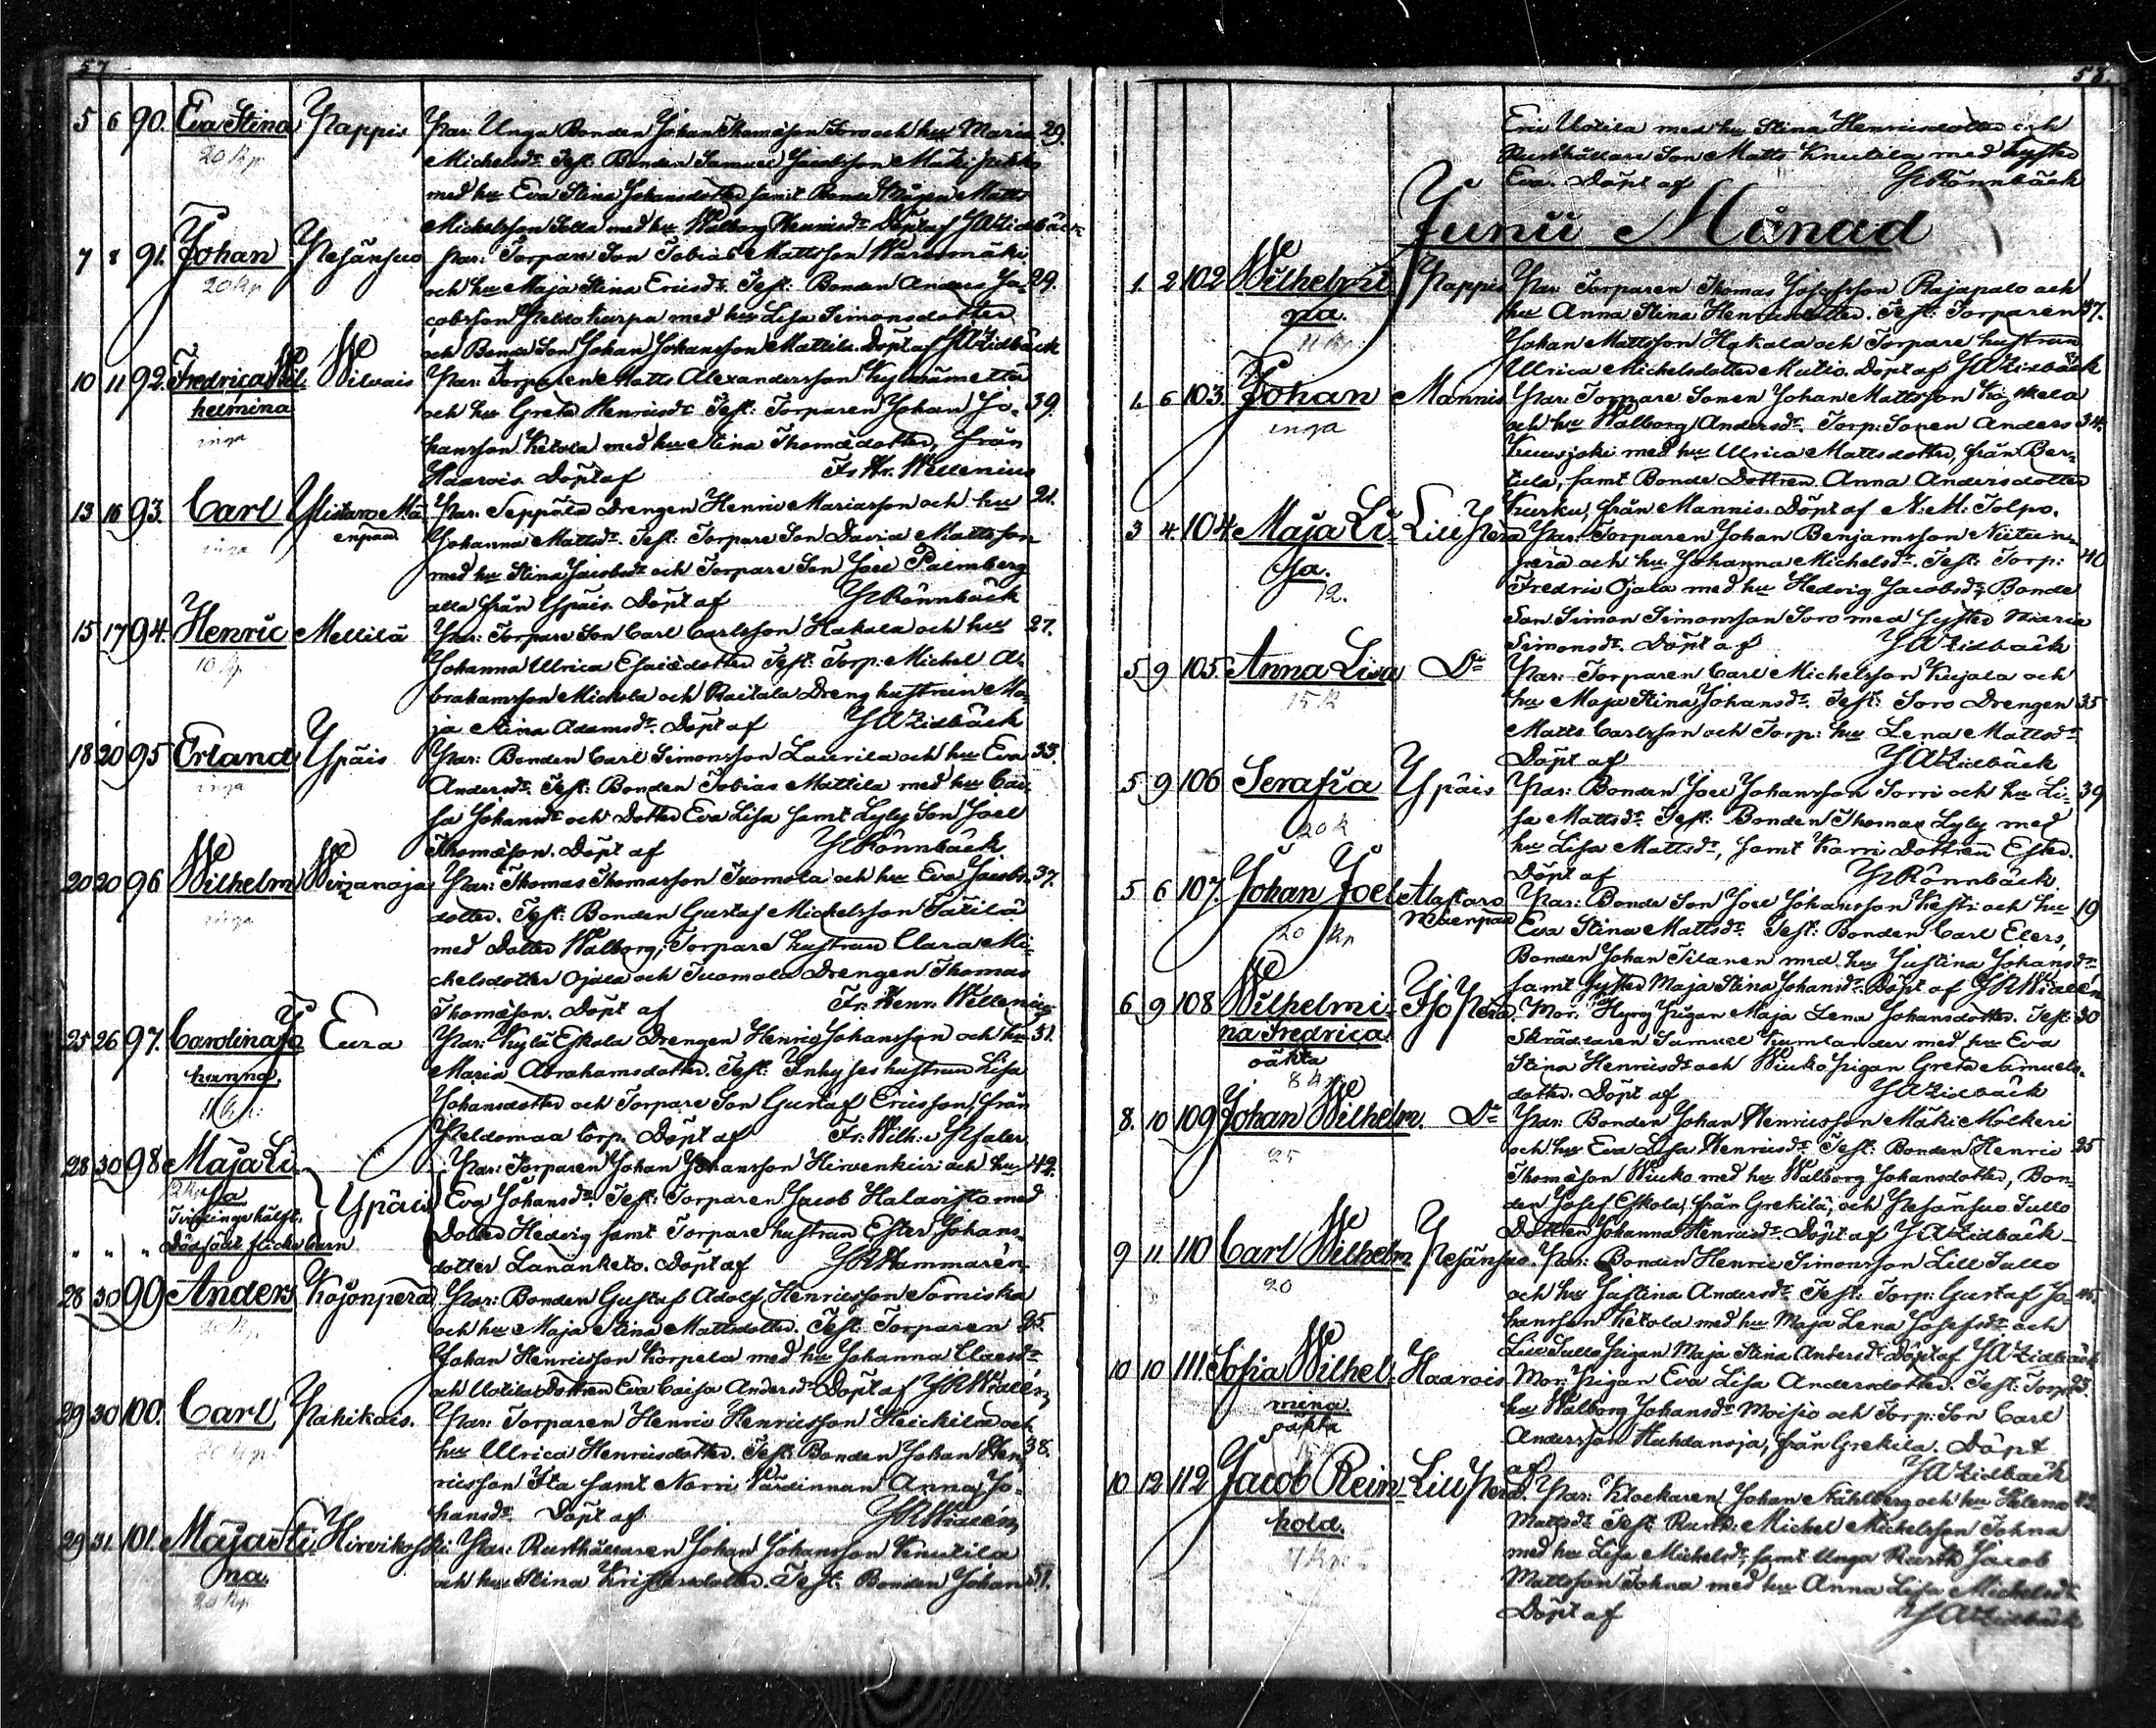 57
5 6 90. Eva Stina Pappis Par: Unga Bonden Johan Thomæson Soro och hu Maria 29.
20 kp Michelsdr. Test: Bonden Samuel Jacobsson
med hu Eva Stina Johansdotter samt Bonde Mågen Matts
Michelsson Solla med hu Walborg Henricsdr Döpt af JAZidbäck
7 8 91. Johan Pesänsuo Par: Torpare Son Tobias Mattsson Waresmäki
20 kp och hu Maja Stina Ericsdr. Test: Bonden Anders Ja- 29.
cobsson Peldo Kurpa med hu Lisa Simonsdotter
och Bonde Son Johan Johansson Mattila. Döpt af JAZidbäck
10 11 92. Fredrica Wil- Wilvais Par: Torparen Matts Alexandersson Kylmämettä
helmina och hu Greta Henricsdr Test: Torparen Johan Jo- 39.
inga hansson Ketola med hu Stina Thomædotter, från
Haarois. Döpt af Fr. Hr. Wellenius
13 16 93. Carl Ylistaro Mä- Par: Seppälä Drengen Henric Mariasson och hu 21.
inga enpää Johanna Mattsdr. Test: Torpare Son David Mattsson
med hu Stina Jacobsdr och Torpare Son Joel Palmberg
alla från Ypäis. Döpt af Rönnbäck
15 17 94. Henric Mellilä Par: Torpare Son Carl Carlsson Hakala och hu 27.
10 kp Johanna Ulrica Esaiædotter Test: Torp: Michel A-
brahamsson Mickola och Raitala Dreng hustrun Ma-
ja Stina Adamsdr. Döpt af JAZidbäck
18 20 95 Erland Ypäis Par: Bonden Carl Simonsson Laurila och hu Eva 33.
inga Andersdr. Test: Bonden Tobias Mattila med hu Cai-
sa Johansdr och Dotter Eva Lisa samt Lyly Son Joel
Thomæson. Döpt af Rönnbäck
20 20 96 Wilhelm Wirzanoja Par: Thomas Thomasson Tuomola och hu Eva Jacobs- 37.
inga dotter. Test: Bonden Gustaf Michelsson Tätilä
med Dotter Walborg, Torpare hustrun Clara Mi-
chelsdotter Ojala och Tuomola Drengen Thomas
Thomæson. Döpt af Fr. Henr. Wellenius
25 26 97. Carolina Jo- Eura Par: Kylä Eskola Drengen Henric Johansson och hu 31.
hanna. Maria Abrahamsdotter. Test: Inhyses hustrun Lisa
Johansdotter och Torpare Son Gustaf Ericsson, från
Peldomaa torp. Döpt af Fr. Wilh:
28 30 98 Maja Li- Par: Torparen Johan Johansson Hirvenkivi och hu 42.
sa Ypäis Eva Johansdr. Test: Torparen Jacob Halavisto med
Tvillingshälft. Dotter Hedvig samt Torpare hustrun Ester Johans-
" " " Dödfödt flicke barn dotter Lananketo. Döpt af Hammarén
28 30 99 Anders Köjönperä Par: Bonden Gustaf Adolf Henricsson Somiska
20 kp och hu Maja Stina Mattsdotter. Test: Torparen 25.
Johan Henricsson Korpela med hu Johanna Claesdr
och Uotila Dottren Eva Caisa Andersdr Döpt af Widlén
29 30 100. Carl Pahikais. Par: Torparen Henric Henricsson Heickilä och
20 kp hu Ulrica Henricsdotter. Test: Bonden Johan Hen- 38.
ricsson Ita samt Norri Värdinnan Anna Jo-
hansdr Döpt af Widlén
29 31. 101. Maja Sti- Hirvikoski: Par: Rusthållaren Johan Johansson Knutila
na. och hu Stina Kristersdotter. Test: Bonden Johan 31.
20 kp
58.
Eric Uotila med hu Stina Henricsdotter och
Rusthållare Son Matts Knutila med syster
Eva. Döpt af Rönnbäck
Junii Månad
1. 2 102 Wilhelmi- Pappis Par: Torparen Thomas Josefsson Rajapalo och
na. hu Anna Stina Henricsdotter. Test: Torparen 37.
Johan Mattsson Hakala och Torpare hustrun
Ulrica Michelsdotter Kutio. Döpt af JAZidbäck
1. 6 103. Johan Mannis Par: Torpare Sonen Johan Mattsson
inga och hu Walborg Andersdr. Torp: Sonen Anders 34.
Kuusjoki med hu Ulrica Mattsdotter, från Ber-
tula, samt Bonde Dottren Anna Andersdotter
Kurku, från Mannis. Döpt af N. M. Tolpo.
3 4. 104 Maja Li- Lill Perä Par: Torparen Johan Benjamsson Niitun-
sa. perä och hu Johanna Michelsdr. Test: Torp: 40
12. Fredric Ojala med hu Hedvig Jacobsdr, Bonde
Son Simon Simonsson Soro med syster Maria
Simonsdr. Döpt af JAZidbäck
5 9 105. Anna Lisa Do Par: Torparen Carl Michelsson Kujala och
15 k hu Maja Stina Johansdr. Test: Soro Drengen 35
Matts Carlsson och Torp: hu Lena Mattsdr
Döpt af JAZidbäck
5 9 106 Serafia Ypäis Par: Bonden Joel Johansson Sorri och hu Li- 39
20 k sa Mattsdr Test: Bonden Thomas Lyly med
hu Lisa Mattsdr, samt Karri Dottren Ester.
Döpt af Rönnbäck
5 6 107. Johan Joel Alastaro Par: Bonde Son Joel Johansson Kesti och hu 19
20 kp Mäenpää Eva Stina Mattsdr Test: Bonden Carl Elers,
Bonden Johan Tilanen med hu Justina Johansdr
samt syster Maja Stina Johansdr. Döpt af Widlén
6 9 108 Wilhelmi- Iso Perä. Mor: Hyrg Pigan Maja Lena Johansdotter. Test: 30
na Fredrica Skräddaren Samuel Kumlander med hu Eva
oäkta Stina Henricsdr och Wiuko Pigan Greta Samuels-
8 k dotter. Döpt af JAZidbäck
8. 10 109 Johan Wilhelm. Do Par: Bonden Johan Henricsson Mäki Molkeri
25 och hu Eva Lisa Henricsdr Test: Bonden Henric 25
Thomæson Wiuko med hu Walborg Johansdotter, Bon-
den Josef Eskola, från Grekilä, och Pesänsuo Sullo
Dottren Johanna Henricsdr. Döpt af JAZidbäck
9 11 110 Carl Wilhelm Pesänsuo. Par: Bonden Henric Simonsson Lill Sullo
20 och hu Justina Andersdr Test: Torp: Gustaf Jo-
hansson Ketola med hu Maja Lena Josefsdr och
Lill Sullo Pigan Maja Stina Andersdr Döpt af JAZidbäck
10 10 111. Sofia Wilhel- Haarois Mor: Pigan Eva Lisa Andersdotter. Test: Torp: 23.
mina hu Walborg Johansdr Moisio och Torp: Son Carl
oäkta Andersson Huhdanoja, från Grekila. Döpt
af JAZidbäck
10 12 112 Jacob Rein- Lill Perä. Par: Klockaren Johan Ståhlberg och hu Helena 42.
hold. Mattsdr Test: Rusth: Michel Michelsson Tohna
med hu Lisa Michelsdr, samt Unga Rusth Jacob
Mattsson Tohna med hu Anna Lisa Michelsdr
Döpt af JAZidbäck